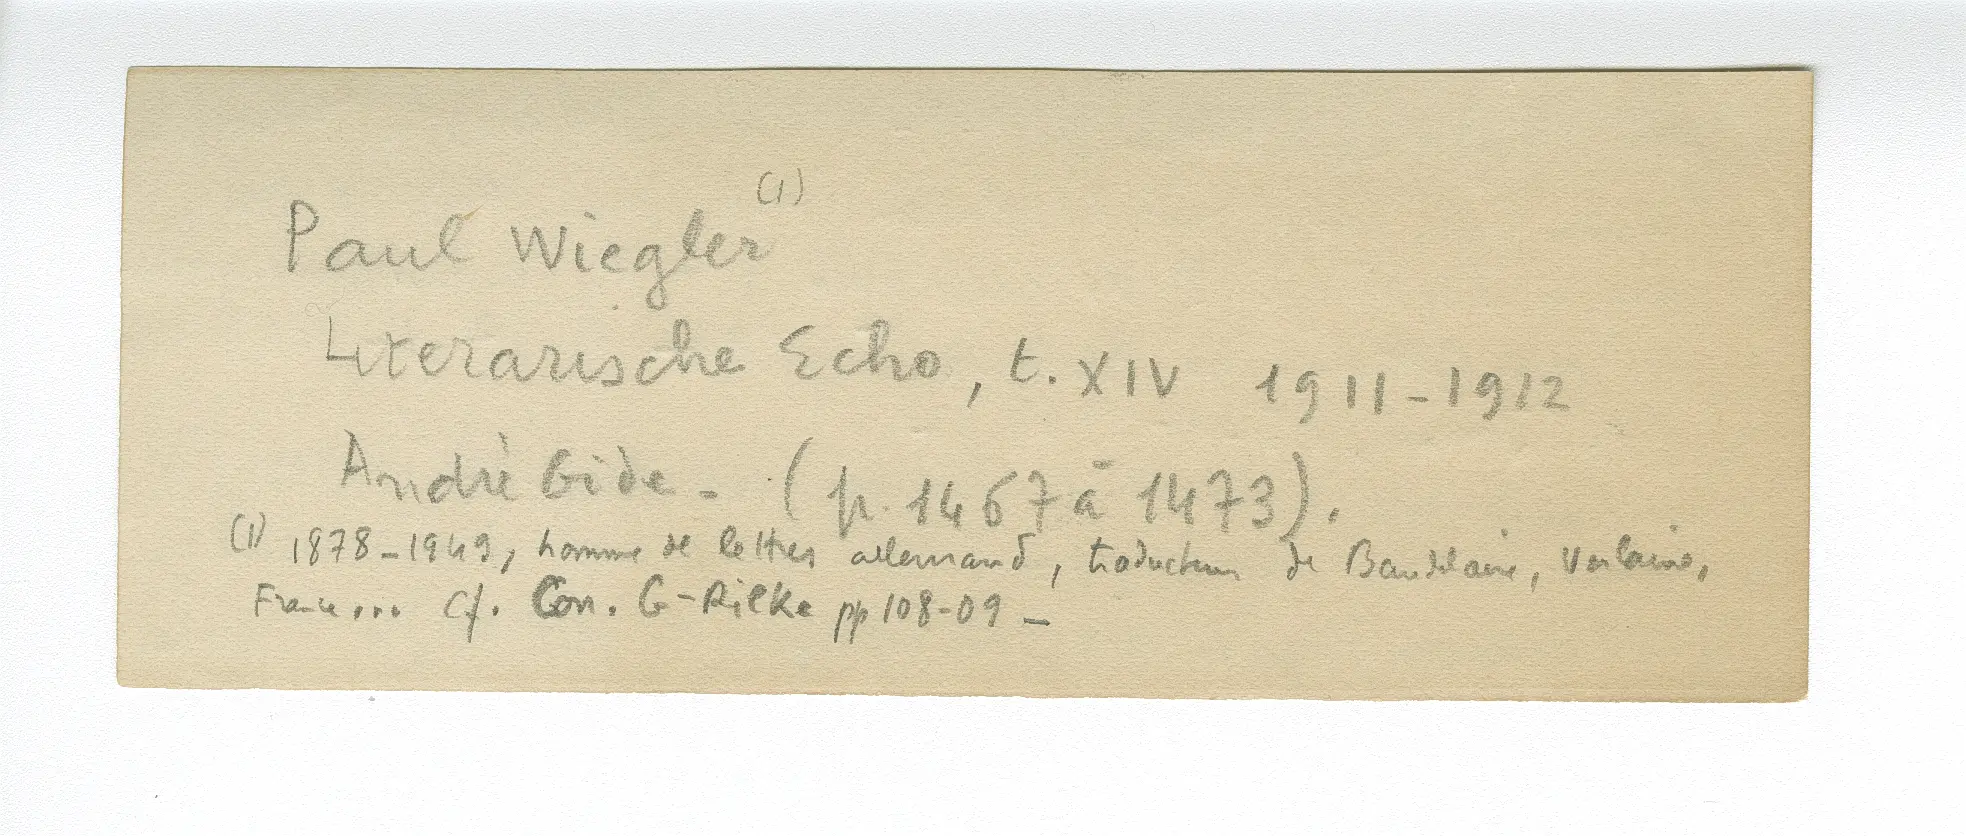 Paul Wiegler (1)
Literarische Echo, t. XIV 1911-1912
André Gide - (p. 1467 à 1473).
(1) 1878-1949, homme de lettres allemand, traducteur de Baudelaire, Verlaine,
France... cf. Corr. G-Rilke pp 108-09 -